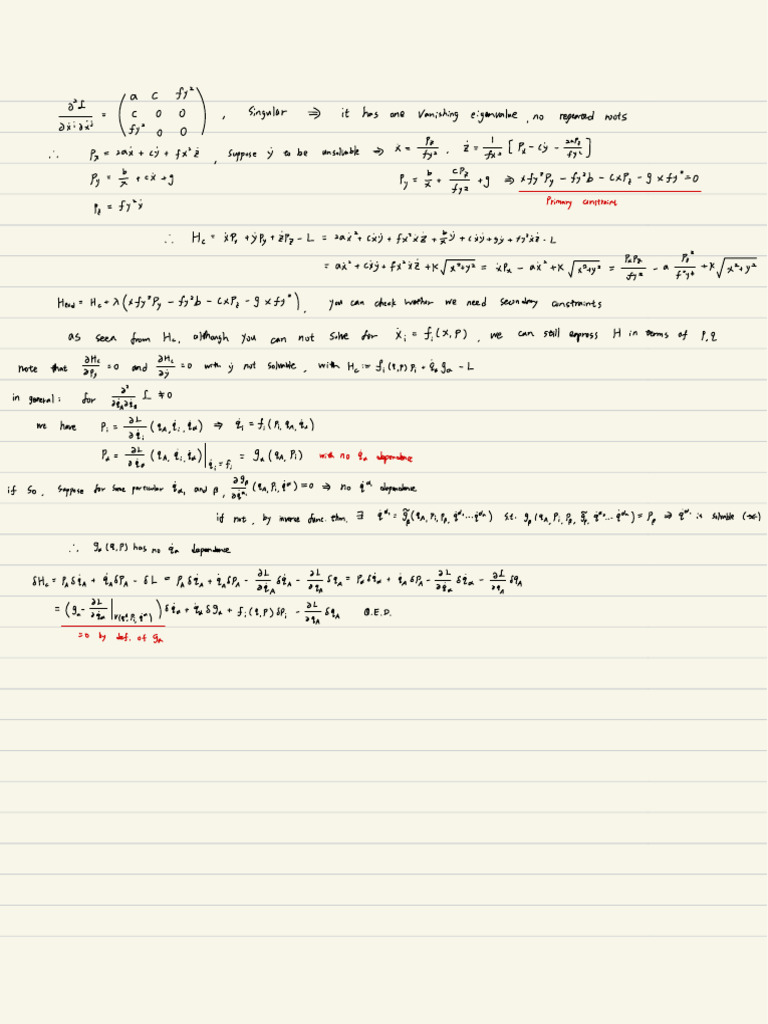 ∂²L/∂ẋⁱ∂ẋʲ = ( a c fy² ; c 0 0 ; fy² 0 0 ) , Singular ⇒ it has one vanishing eigenvalue, no repeated roots
∴ Pₓ = 2aẋ + cẏ + fx²ż , suppose ẏ to be unsolvable ⇒ ẋ = P_z/fy² . ż = 1/fx² [ Pₓ - cẏ - 2aP_z/fy² ]
P_y = b/x + cẋ + g P_y = b/x + cP_z/fy² + g ⇒ xfy²P_y - fy²b - cxP_z - gxfy² = 0
P_z = fy²ẋ Primary constraint
∴ H_c = ẋPₓ + ẏP_y + żP_z - L = 2aẋ² + cẋẏ + fx²ẋż + b/x ẏ + cẋẏ + gẏ + fy²ẋż - L
= aẋ² + cẋẏ + fx²ẋż + K√(x²+y²) = ẋPₓ - aẋ² + K√(x²+y²) = PₓP_z/fy² - a P_z²/f²y⁴ + K√(x²+y²)
H = H_c + λ(xfy²P_y - fy²b - cxP_z - gxfy²) , you can check whether we need secondary constraints
as seen from H_c, although you can not solve for ẋᵢ = fᵢ(x,p) , we can still express H in terms of p,q
note that ∂H_c/∂P_y = 0 and ∂H_c/∂ẏ = 0 with ẏ not solvable , with H_c := fᵢ(q,p)pᵢ + q̇_α g_α - L
in general: for ∂²/∂q̇_A∂q̇_B L ≠ 0
we have Pᵢ = ∂L/∂q̇ᵢ (q_A, q̇ᵢ, q̇_α) ⇒ q̇ᵢ = fᵢ(Pᵢ, q_A, q̇_α)
P_α = ∂L/∂q̇_α (q_A, q̇ᵢ, q̇_α)|_{q̇ᵢ=fᵢ} = g_α(q_A, Pᵢ) with no q̇_α dependence
if so, suppose for some particular q̇_α₁ and β, ∂g_β/∂q̇^α₁ (q_A, Pᵢ, q̇^α) = 0 ⇒ no q̇^α₁ dependence
if not, by inverse func. thm. ∃ q̇^α₁ = g̃_β(q_A, Pᵢ, P_β, q̇^α₂...q̇^αₙ) s.t. g_β(q_A, Pᵢ, P_β, g̃_β, q̇^α₂...q̇^αₙ) = P_β ⇒ q̇^α₁ is solvable (→←)
∴ g_α(q,p) has no q̇_α dependence
δH_c = P_Aδq̇_A + q̇_AδP_A - δL = P_Aδq̇_A + q̇_AδP_A - ∂L/∂q̇_A δq̇_A - ∂L/∂q_A δq_A = P_αδq̇_α + q̇_AδP_A - ∂L/∂q̇_α δq̇_α - ∂L/∂q_A δq_A
= (g_α - ∂L/∂q̇_α |) δq̇_α + q̇_αδg_α + fᵢ(q,p)δPᵢ - ∂L/∂q_A δq_A Q.E.D.
=0 by def. of g_α